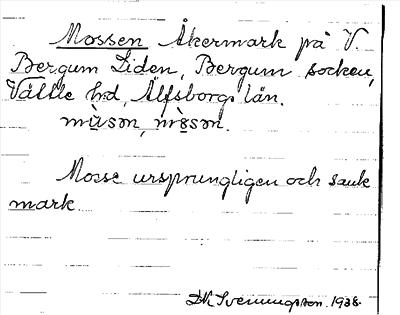 Mossen Åkermark på V.
Bergum Liden, Bergum socken,
Vättle hd, Älfsborgs län.
mùsən, mòsən.
Mosse ursprungligen och sank
mark
DK Svenungsson. 1938.